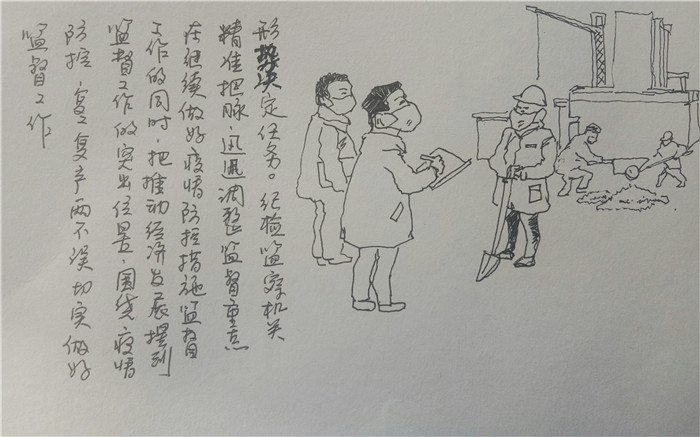 形势决定任务。纪检监察机关
精准把脉、迅速调整监督重点
在继续做好疫情防控措施监督
工作的同时，把推动经济发展摆到
监督工作的突出位置，围绕疫情
防控，复工复产两不误切实做好
监督工作